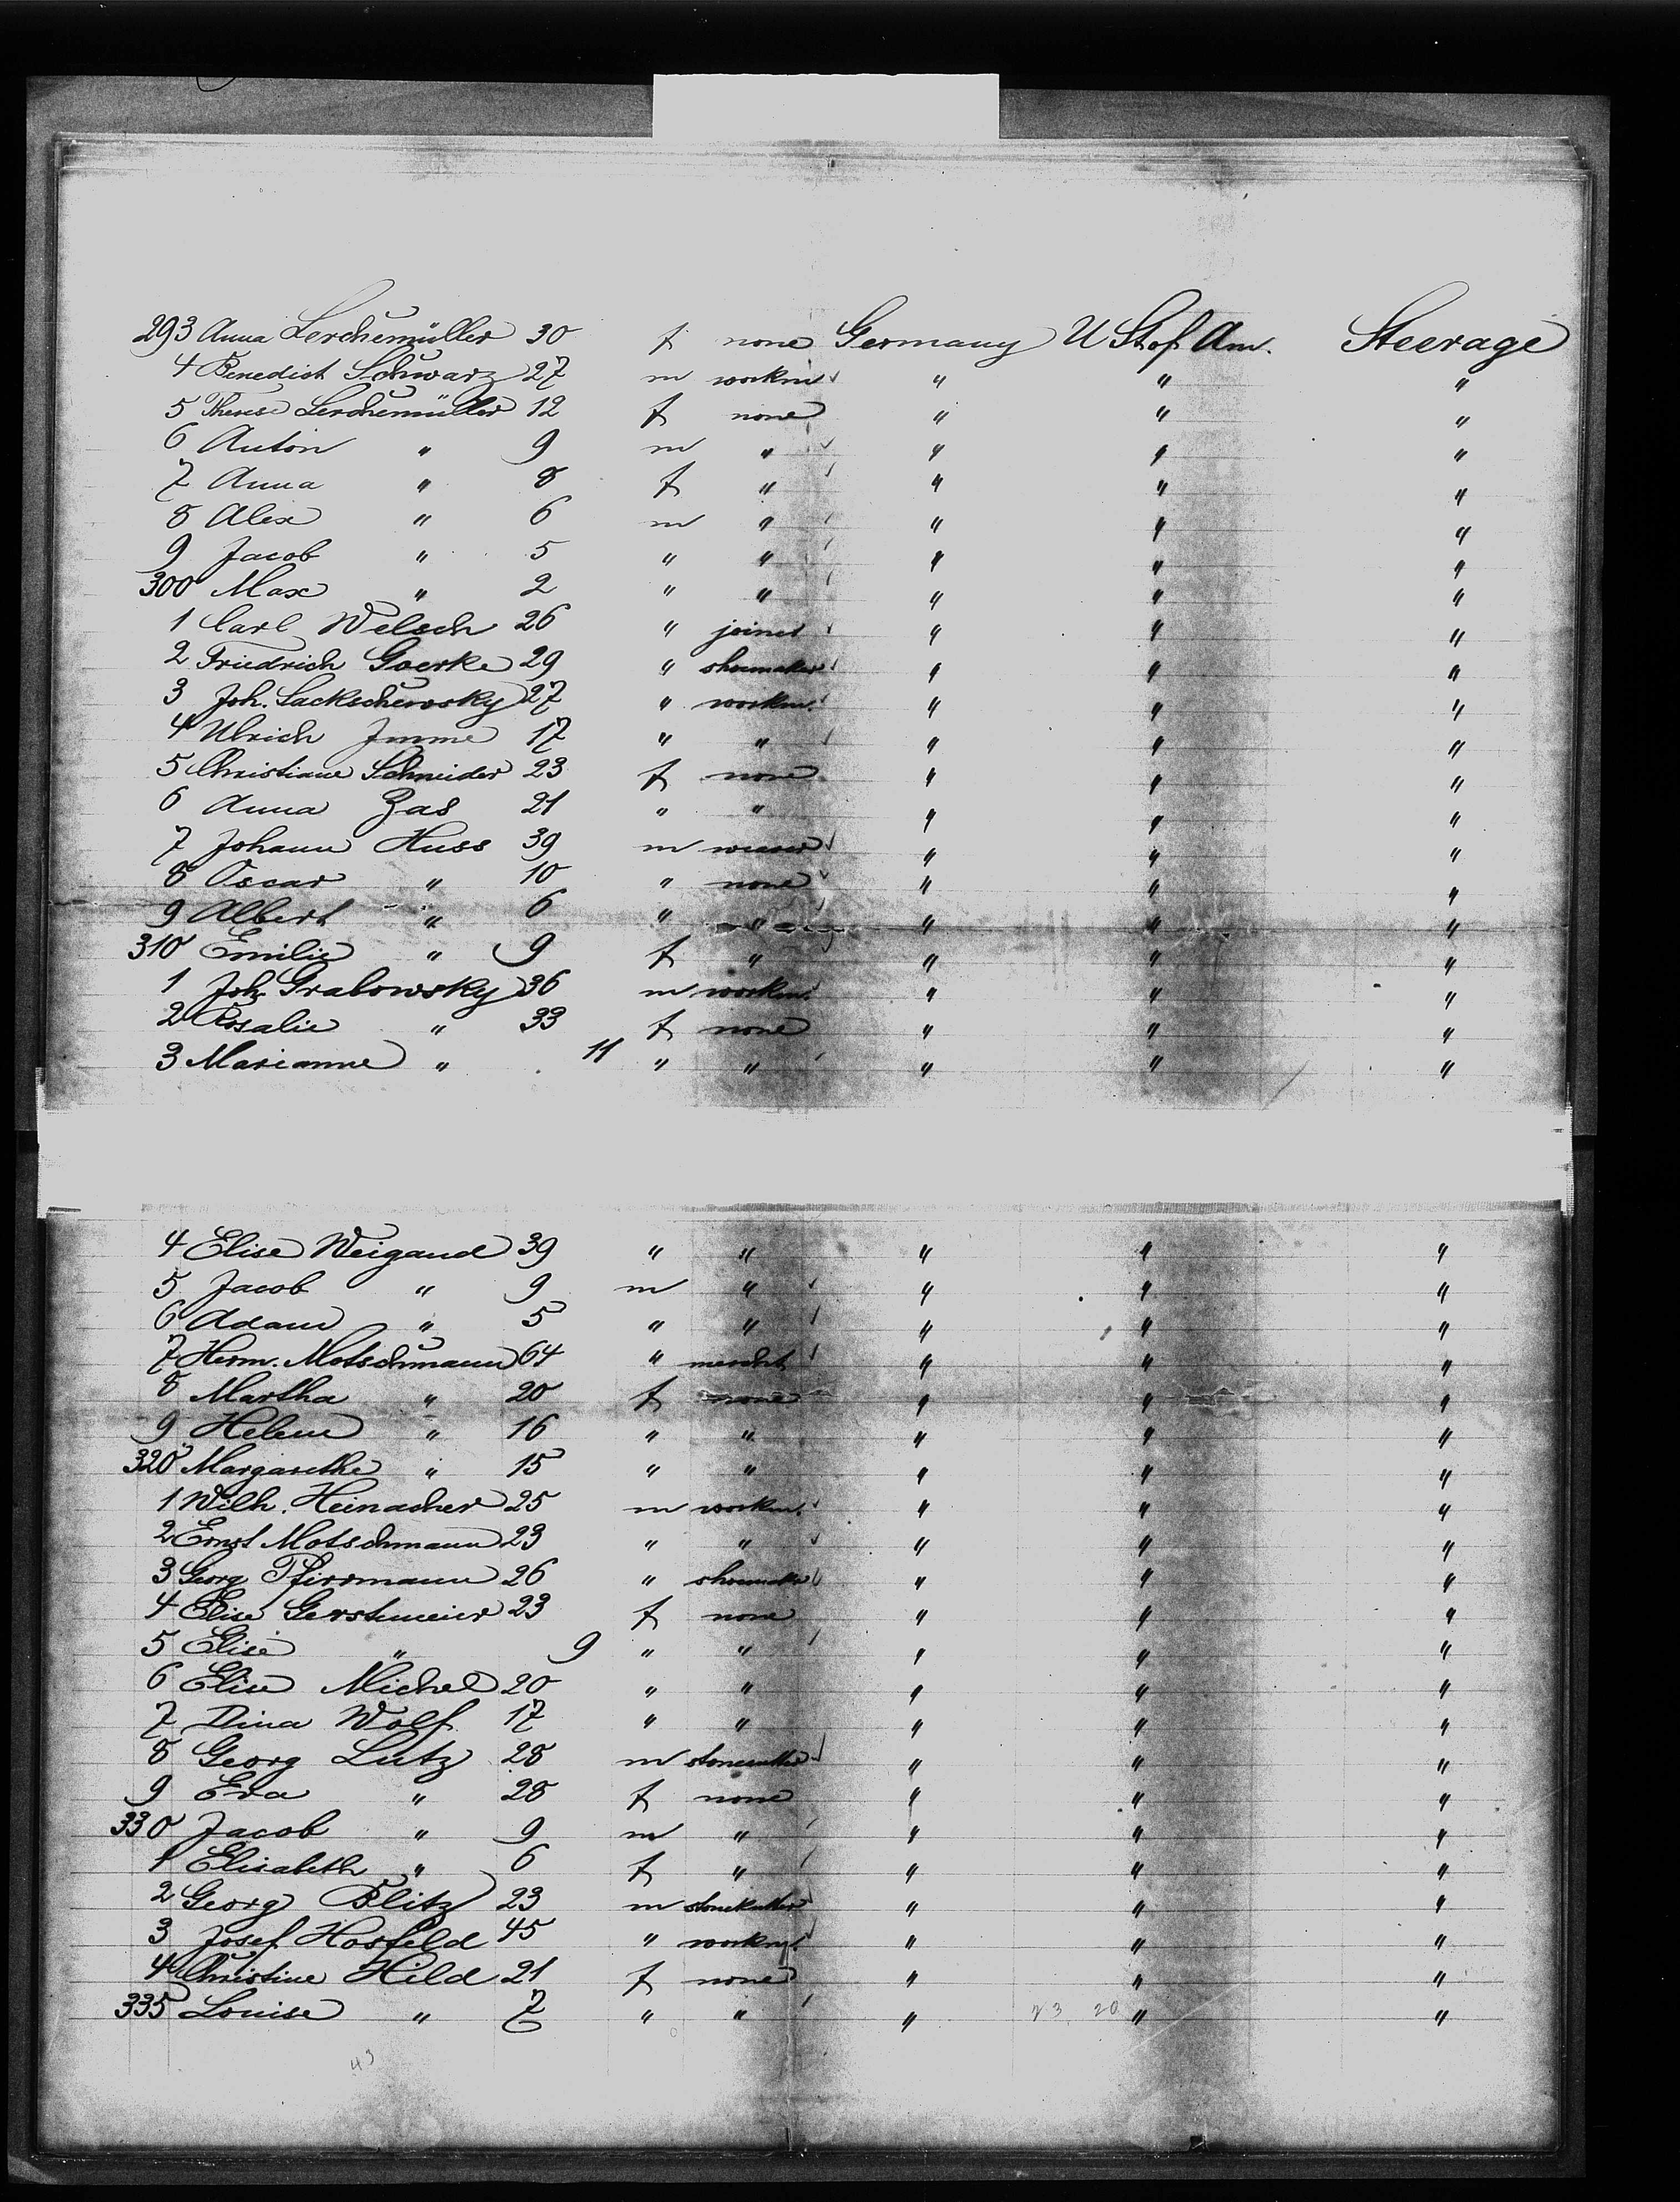 293 Anna Lerchemüller 30 f none Germany U St of Am. Steerage
4 Benedict Schwarz 27 m workm " " "
5 Therese Lerchemüller 12 f none " " "
6 Anton " 9 m " " " "
7 Anna " 8 f " " " "
8 Alex " 6 m " " " "
9 Jacob " 5 " " " " "
300 Max " 2 " " " " "
1 Carl Welsch 26 " joiner " " "
2 Friedrich Goerke 29 " shoemaker " " "
3 Joh. Sackschewsky 27 " workm. " " "
4 Ulrich Imme 17 " " " " "
5 Christiane Schneider 23 f none " " "
6 Anna Zas 21 " " " " "
7 Johann Huss 39 m weaver " " "
8 Oscar " 10 " none " " "
9 Albert " 6 " " " " "
310 Emilie " 9 f " " " "
1 Joh. Grabowsky 36 m workm. " " "
2 Rosalie " 33 f none " " "
3 Marianne " 11 " " " " "
4 Elise Weigand 39 " " " " "
5 Jacob " 9 m " " " "
6 Adam " 5 " " " " "
7 Herm. Motschmann 64 " mercht " " "
8 Martha " 20 f none " " "
9 Helene " 16 " " " " "
320 Margarethe " 15 " " " " "
1 Wilh. Heinacher 25 m workm. " " "
2 Ernst Motschmann 23 " " " " "
3 Georg Pfirrmann 26 " shoemaker " " "
4 Elise Gerstmeier 23 f none " " "
5 Elise " 9 " " " " "
6 Elise Michel 20 " " " " "
7 Dina Wolf 17 " " " " "
8 Georg Lutz 28 m stonecutter " " "
9 Eva " 28 f none " " "
330 Jacob " 9 m " " " "
1 Elisabeth " 6 f " " " "
2 Georg Blitz 23 m stonekutter " " "
3 Josef Hosfeld 45 " workm. " " "
4 Christine Hild 21 f none " " "
335 Louise " 7 " " " 23 20 " "
43